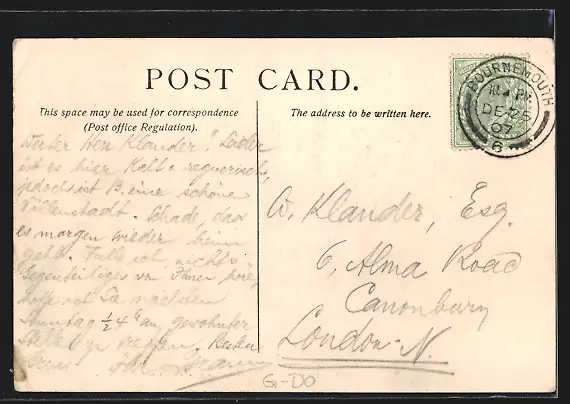 POST CARD.
This space may be used for correspondence
(Post office Regulation).
The address to be written here.
BOURNEMOUTH
DE 25
07
6
Werter Herr Klander! Leider
ist es hier kalt & regnerisch,
jedoch ist B. eine schöne
Villenstadt. Schade, dass
es morgen wieder heim
geht. Falls ich nichts
Gegenteiliges von Ihnen höre,
hoffe ich Sie nächsten
Sonntag ½4 an gewohnter
Stelle zu treffen. Besten
Gruss Ihr
W. Klander, Esq.
6, Alma Road
Canonbury
London N.
G-DO